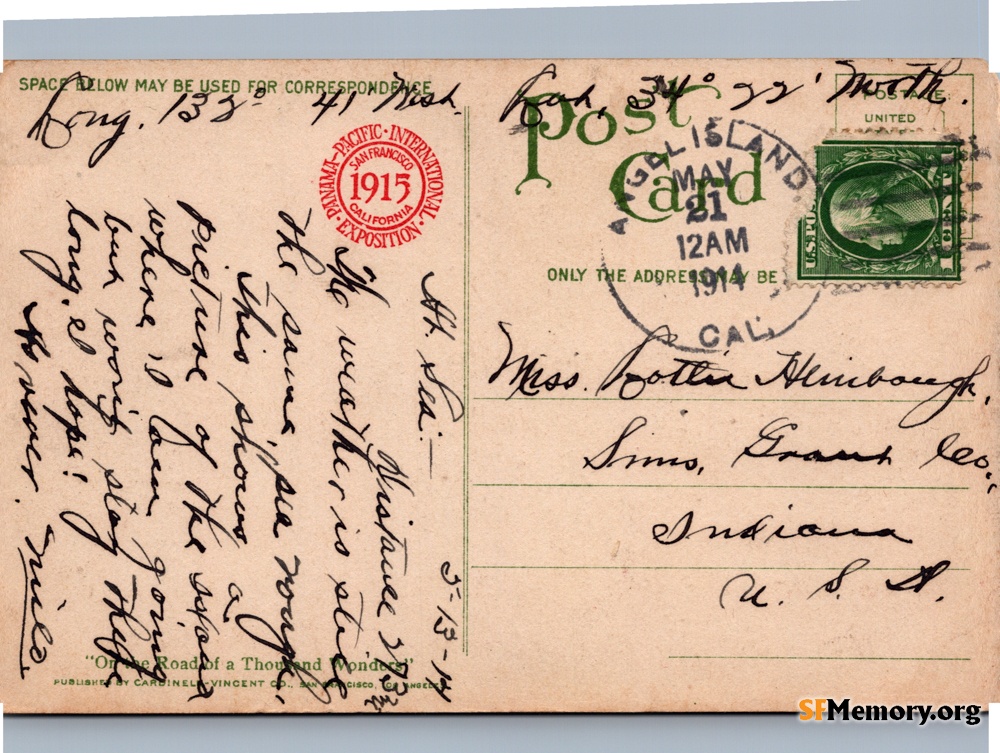 SPACE BELOW MAY BE USED FOR CORRESPONDENCE
Long. 132° 41' West. Lat. 34° 22' North.
POSTAGE
UNITED
Post Card
PANAMA-PACIFIC-INTERNATIONAL
EXPOSITION
SAN FRANCISCO
1915
CALIFORNIA
ANGEL ISLAND,
MAY
21
12AM
1914
CAL.
ONLY THE ADDRESS MAY BE
At Sea:—
5-13-14
Distance 273½
The weather is still
the same, sea rough.
This shows a
picture of the island
where I am going
but wont stay they
long, I hope!
As ever. Milo.
Miss. Lottie Heinbaugh,
Sims, Grant Co.,
Indiana
U. S. A.
"On the Road of a Thousand Wonders"
PUBLISHED BY CARDINELL-VINCENT CO., SAN FRANCISCO, LOS ANGELES
SFMemory.org